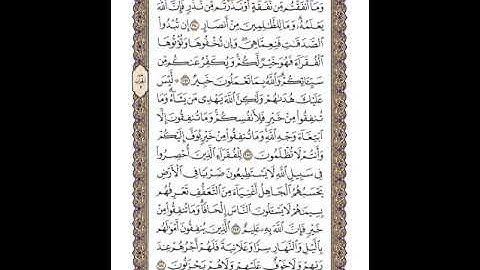 وَمَا أَنفَقْتُم مِّن نَّفَقَةٍ أَوْ نَذَرْتُم مِّن نَّذْرٍ فَإِنَّ اللَّهَ
يَعْلَمُهُ ۗ وَمَا لِلظَّالِمِينَ مِنْ أَنصَارٍ ٢٧٠ إِن تُبْدُوا
الصَّدَقَاتِ فَنِعِمَّا هِيَ ۖ وَإِن تُخْفُوهَا وَتُؤْتُوهَا
الْفُقَرَاءَ فَهُوَ خَيْرٌ لَّكُمْ ۚ وَيُكَفِّرُ عَنكُم مِّن
سَيِّئَاتِكُمْ ۗ وَاللَّهُ بِمَا تَعْمَلُونَ خَبِيرٌ ٢٧١ ۞ لَّيْسَ
عَلَيْكَ هُدَاهُمْ وَلَٰكِنَّ اللَّهَ يَهْدِي مَن يَشَاءُ ۗ وَمَا
تُنفِقُوا مِنْ خَيْرٍ فَلِأَنفُسِكُمْ ۚ وَمَا تُنفِقُونَ إِلَّا
ابْتِغَاءَ وَجْهِ اللَّهِ ۚ وَمَا تُنفِقُوا مِنْ خَيْرٍ يُوَفَّ إِلَيْكُمْ
وَأَنتُمْ لَا تُظْلَمُونَ ٢٧٢ لِلْفُقَرَاءِ الَّذِينَ أُحْصِرُوا
فِي سَبِيلِ اللَّهِ لَا يَسْتَطِيعُونَ ضَرْبًا فِي الْأَرْضِ
يَحْسَبُهُمُ الْجَاهِلُ أَغْنِيَاءَ مِنَ التَّعَفُّفِ تَعْرِفُهُم
بِسِيمَاهُمْ لَا يَسْأَلُونَ النَّاسَ إِلْحَافًا ۗ وَمَا تُنفِقُوا مِنْ
خَيْرٍ فَإِنَّ اللَّهَ بِهِ عَلِيمٌ ٢٧٣ الَّذِينَ يُنفِقُونَ أَمْوَالَهُم
بِاللَّيْلِ وَالنَّهَارِ سِرًّا وَعَلَانِيَةً فَلَهُمْ أَجْرُهُمْ عِندَ
رَبِّهِمْ وَلَا خَوْفٌ عَلَيْهِمْ وَلَا هُمْ يَحْزَنُونَ ٢٧٤